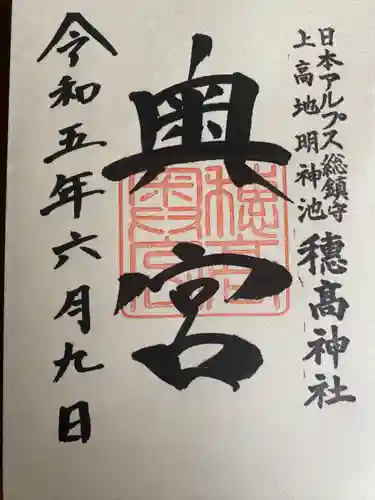 日本アルプス総鎮守
上高地明神池
穂高神社
奥宮
令和五年六月九日